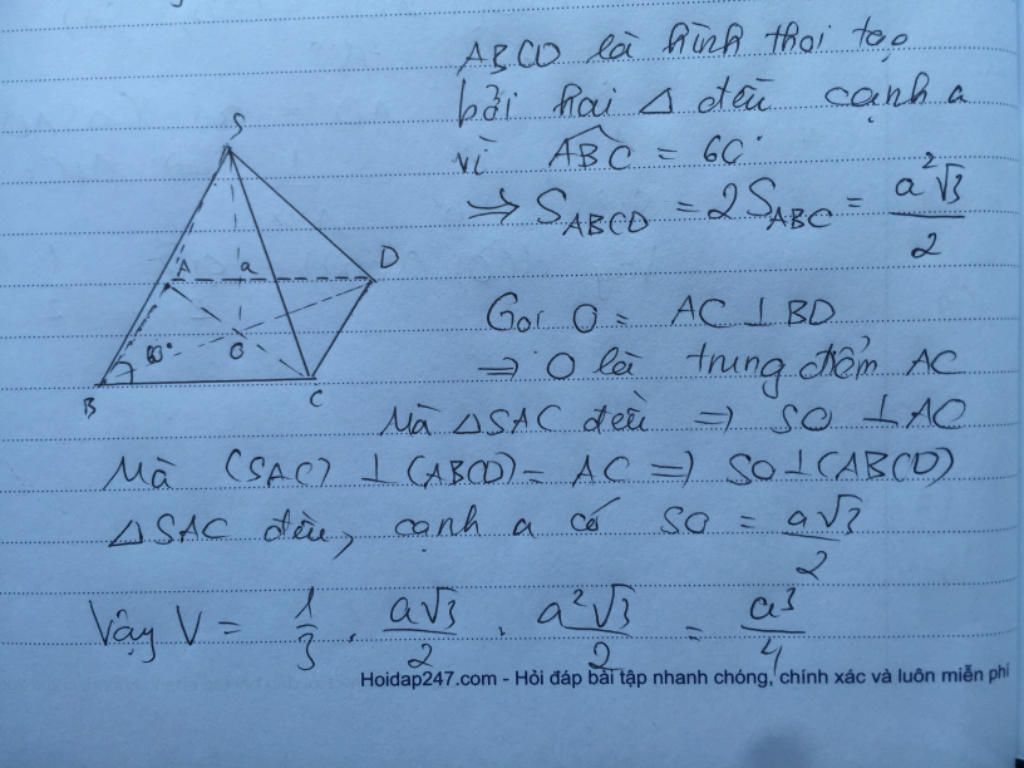 ABCD là hình thoi tạo
bởi hai Δ đều cạnh a
vì ABC = 60°
=> S_ABCD = 2S_ABC = a²√3/2
S
A a D
60° O
B C
Gọi O = AC ⊥ BD
=> O là trung điểm AC
Mà ΔSAC đều => SO ⊥ AC
Mà (SAC) ⊥ (ABCD) = AC => SO ⊥ (ABCD)
ΔSAC đều, cạnh a có SO = a√3/2
Vậy V = 1/3 . a√3/2 . a²√3/2 = a³/4
Hoidap247.com - Hỏi đáp bài tập nhanh chóng, chính xác và luôn miễn phí